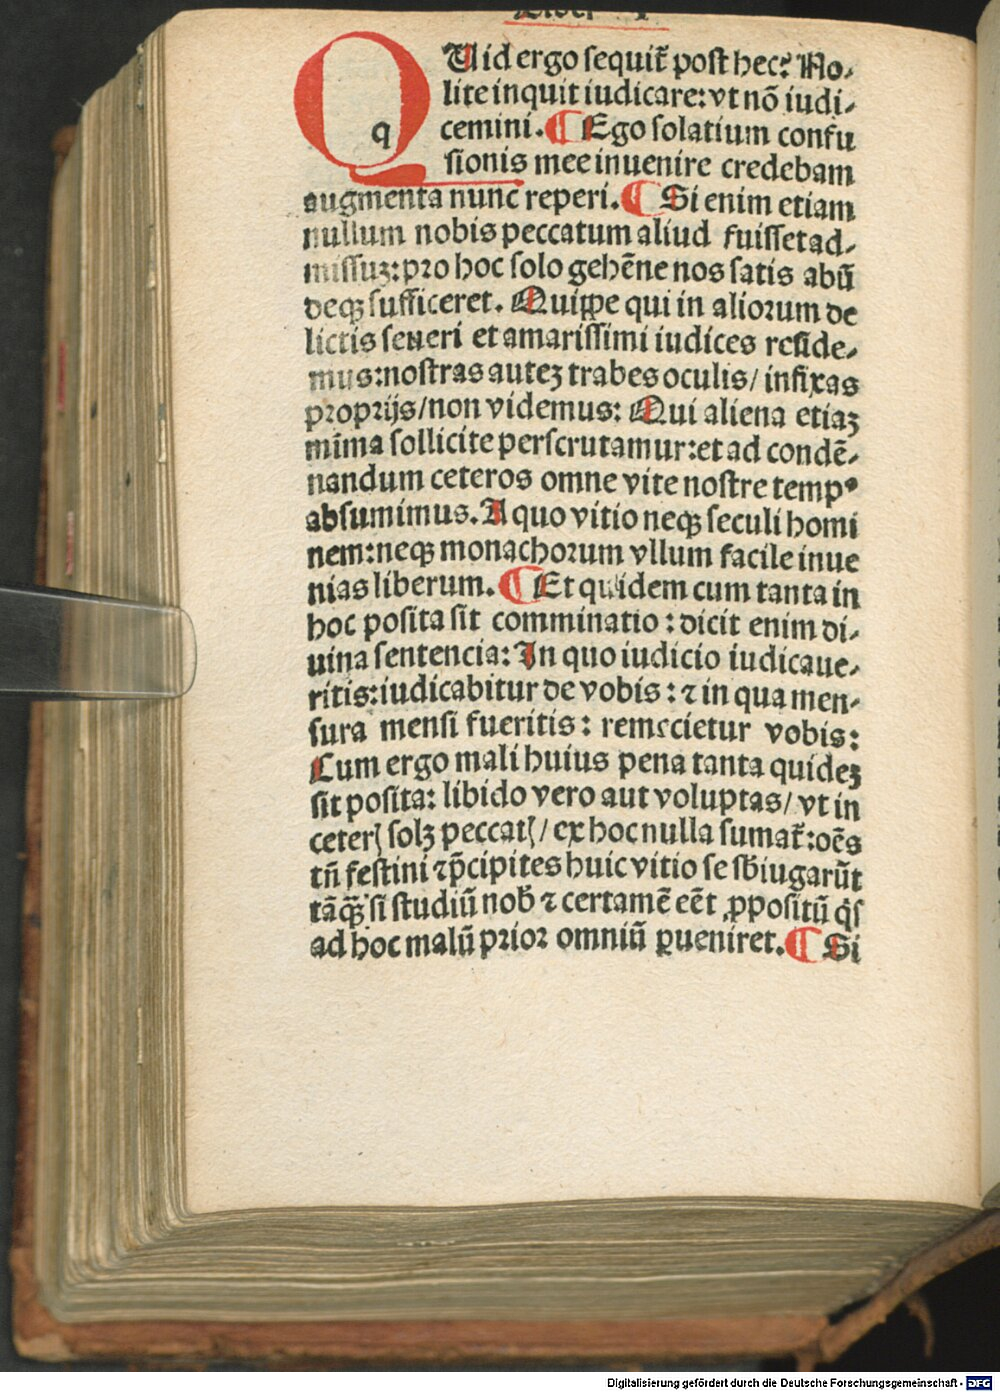 Liber I
QUid ergo sequit᷑ post hec? No⸗
lite inquit iudicare: vt nō iudi⸗
cemini. ¶ Ego solatium confu
sionis mee inuenire credebam
augmenta nunc reperi. ¶ Si enim etiam
nullum nobis peccatum aliud fuisset ad⸗
missuꝫ: pro hoc solo gehēne nos satis abū
deqꝫ sufficeret. Quippe qui in aliorum de
lictis seueri et amarissimi iudices reside⸗
mus: nostras auteꝫ trabes oculis/ infixas
proprijs/ non videmus: Qui aliena etiaꝫ
mīma sollicite perscrutamur: et ad condē⸗
nandum ceteros omne vite nostre tempꝰ
absumimus. A quo vitio neqꝫ seculi homi
nem: neqꝫ monachorum vllum facile inue
nias liberum. ¶ Et quidem cum tanta in
hoc posita sit comminatio: dicit enim di⸗
uina sentencia: In quo iudicio iudicaue⸗
ritis: iudicabitur de vobis: ⁊ in qua men⸗
sura mensi fueritis: remecietur vobis:
Cum ergo mali huius pena tanta quideꝫ
sit posita: libido vero aut voluptas/ vt in
ceterꝭ solꝫ peccatꝭ/ ex hoc nulla sumat᷑: oēs
tn̄ festini ⁊ p̄cipites huic vitio se sb̄iugarūt
tāqꝫ̄ si studiū nob̄ ⁊ certamē eēt ꝓpositū q̇s
ad hoc malū prior omniū ꝑueniret. ¶ Si
Digitalisierung gefördert durch die Deutsche Forschungsgemeinschaft - DFG